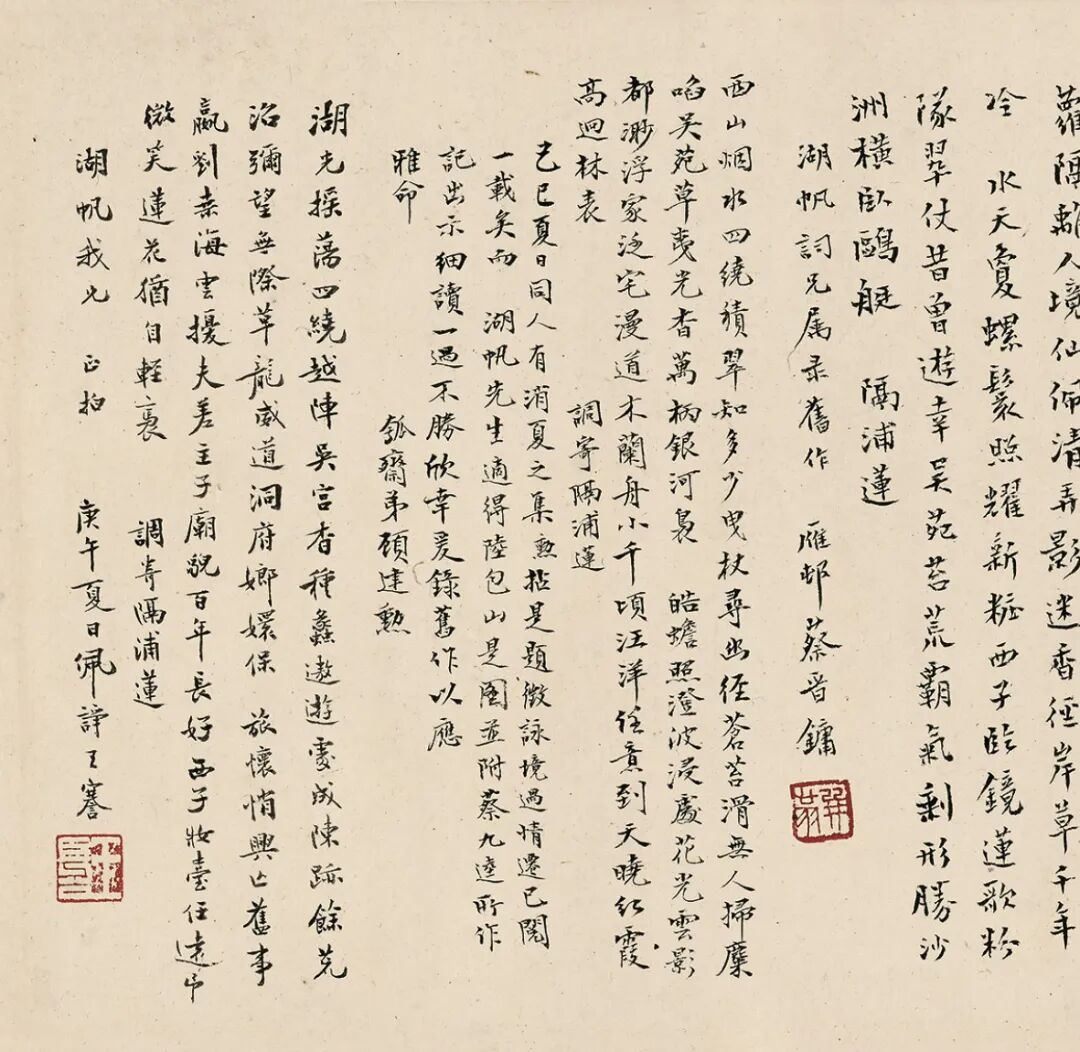 蘿隔離人境仙侶清弄影迷香徑岸草千年
冷　水天敻螺鬟照耀新粧西子臨鏡蓮歌粉
隊翠仗昔曾遊幸吳苑苔荒霸氣剩形勝沙
洲橫臥鷗艇　隔浦蓮
湖帆詞兄属录舊作　雁邨蔡晋鏞
西山烟水四繞積翠知多少曳杖尋幽徑蒼苔滑無人掃麋
啗吳苑草戔光杳萬柄銀河裊　皓蟾照澄波浸處花光雲影
都渺浮家泛宅漫道木蘭舟小千頃汪洋任意到天曉紅霞
高迥林表　調寄隔浦蓮
己巳夏日同人有消夏之集勲拈是題徵詠境過情遷已閱
一載矣而　湖帆先生適得陸包山是圖並附蔡九逵所作
記出示細讀一過不勝欣幸爰錄舊作以應
雅命　瓠齋弟顾建勲
湖光搖蕩四繞越陣吳宮杳種蠡遨遊處成陳跡餘芫
沼彌望無際草龍威道洞府嫏嬛保　旅懷悄興亡舊事
嬴劉桑海雲擾夫差主子廟貌百年長好西子妝臺任遠弔
微笑蓮花猶自輕裊　調寄隔浦蓮
湖帆我兄　正拍　庚午夏日佩諍王謇